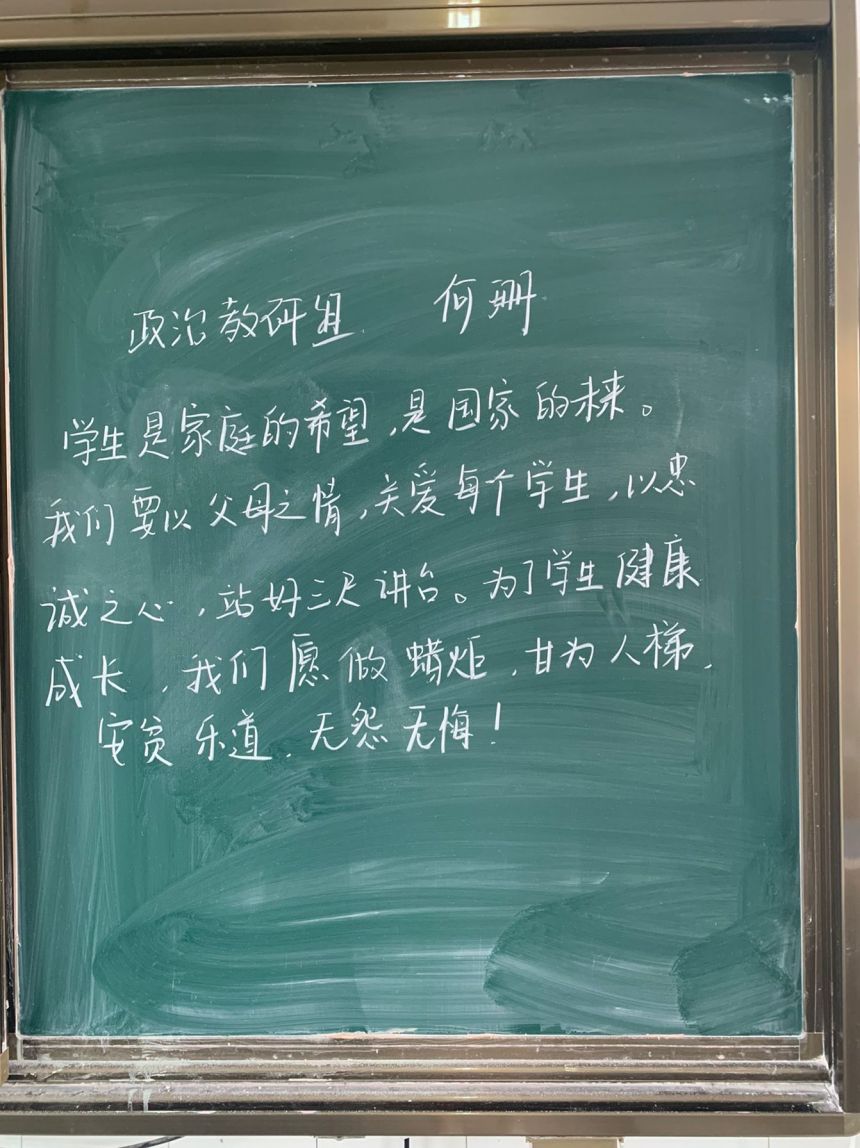 政治教研组 何珊
学生是家庭的希望,是国家的未来。
我们要以父母之情,关爱每个学生,以忠
诚之心,站好三尺讲台。为了学生健康
成长,我们愿做蜡炬,甘为人梯,
安贫乐道,无怨无悔!